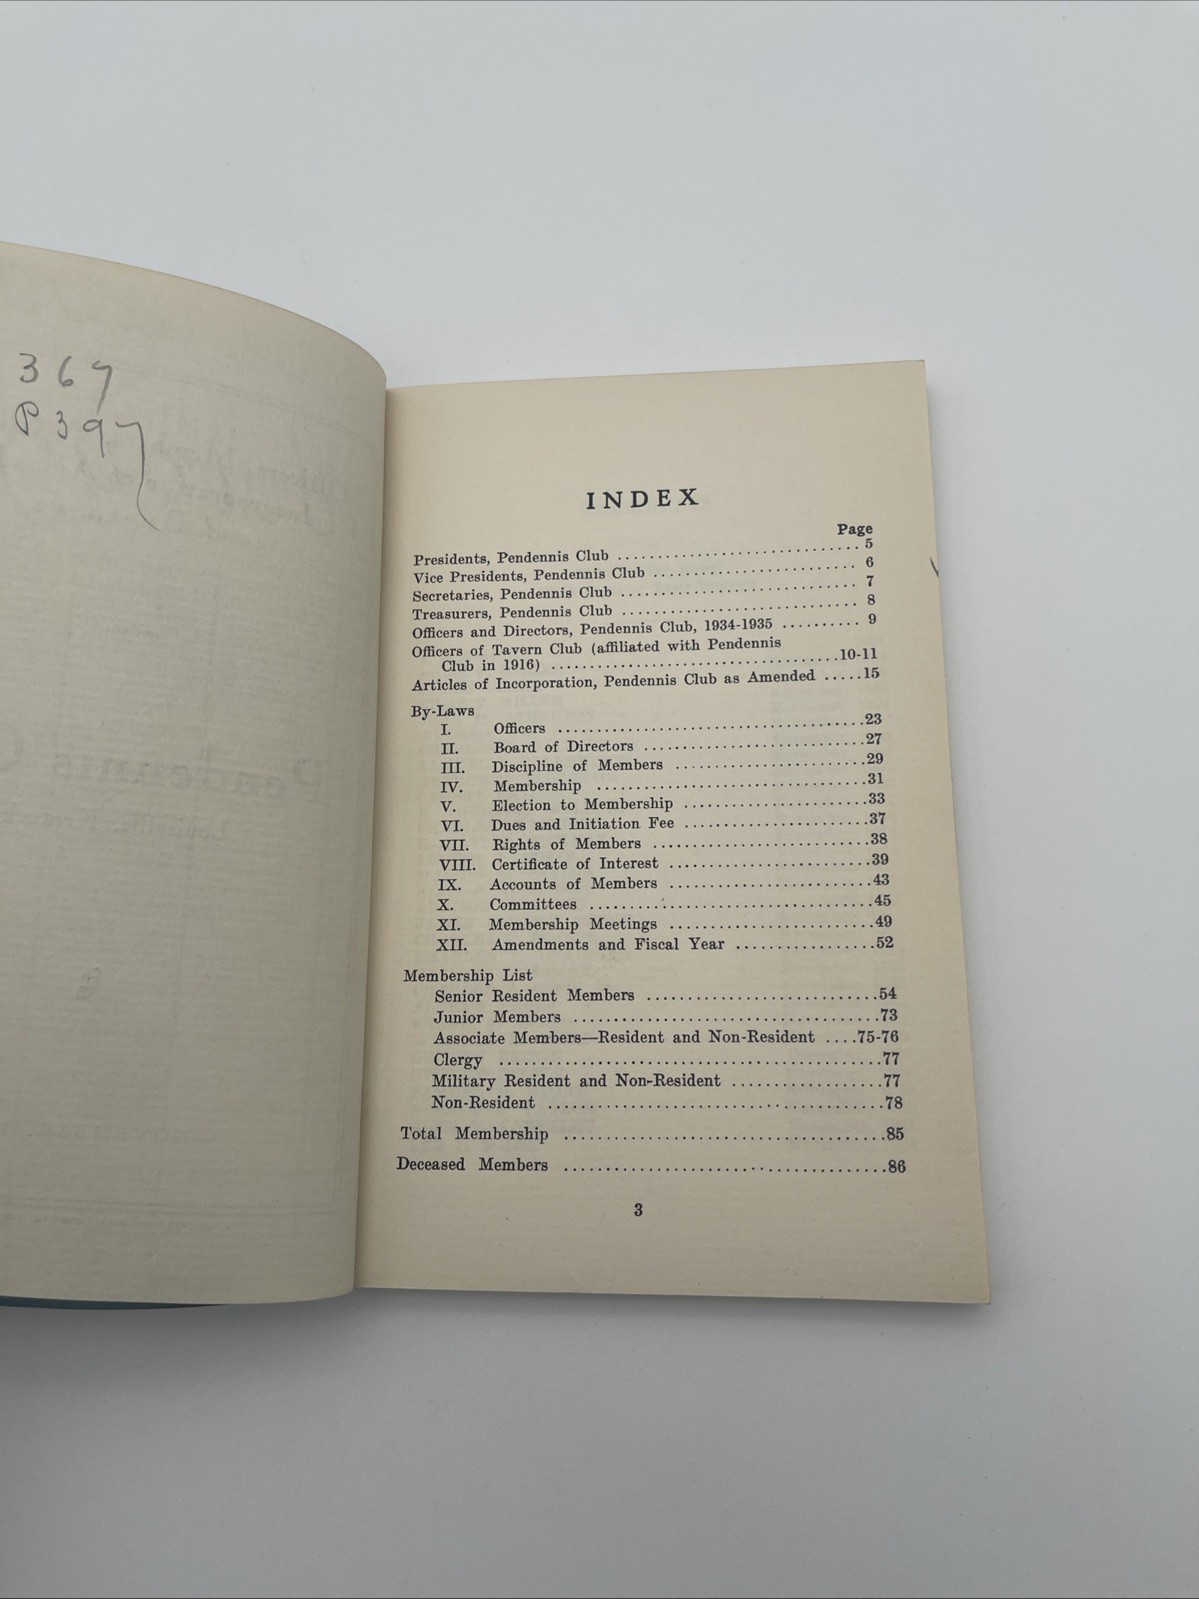 367
P397
INDEX
Page
Presidents, Pendennis Club .............................. 5
Vice Presidents, Pendennis Club ......................... 6
Secretaries, Pendennis Club ............................. 7
Treasurers, Pendennis Club ............................. 8
Officers and Directors, Pendennis Club, 1934-1935 .......... 9
Officers of Tavern Club (affiliated with Pendennis
Club in 1916) ...................................10-11
Articles of Incorporation, Pendennis Club as Amended .....15
By-Laws
I. Officers .....................................23
II. Board of Directors ...........................27
III. Discipline of Members .......................29
IV. Membership .................................31
V. Election to Membership .......................33
VI. Dues and Initiation Fee .......................37
VII. Rights of Members ...........................38
VIII. Certificate of Interest .........................39
IX. Accounts of Members .........................43
X. Committees ...................................45
XI. Membership Meetings .........................49
XII. Amendments and Fiscal Year .................52
Membership List
Senior Resident Members ............................54
Junior Members .....................................73
Associate Members—Resident and Non-Resident ....75-76
Clergy ..............................................77
Military Resident and Non-Resident ...................77
Non-Resident .........................................78
Total Membership .......................................85
Deceased Members .......................................86
3